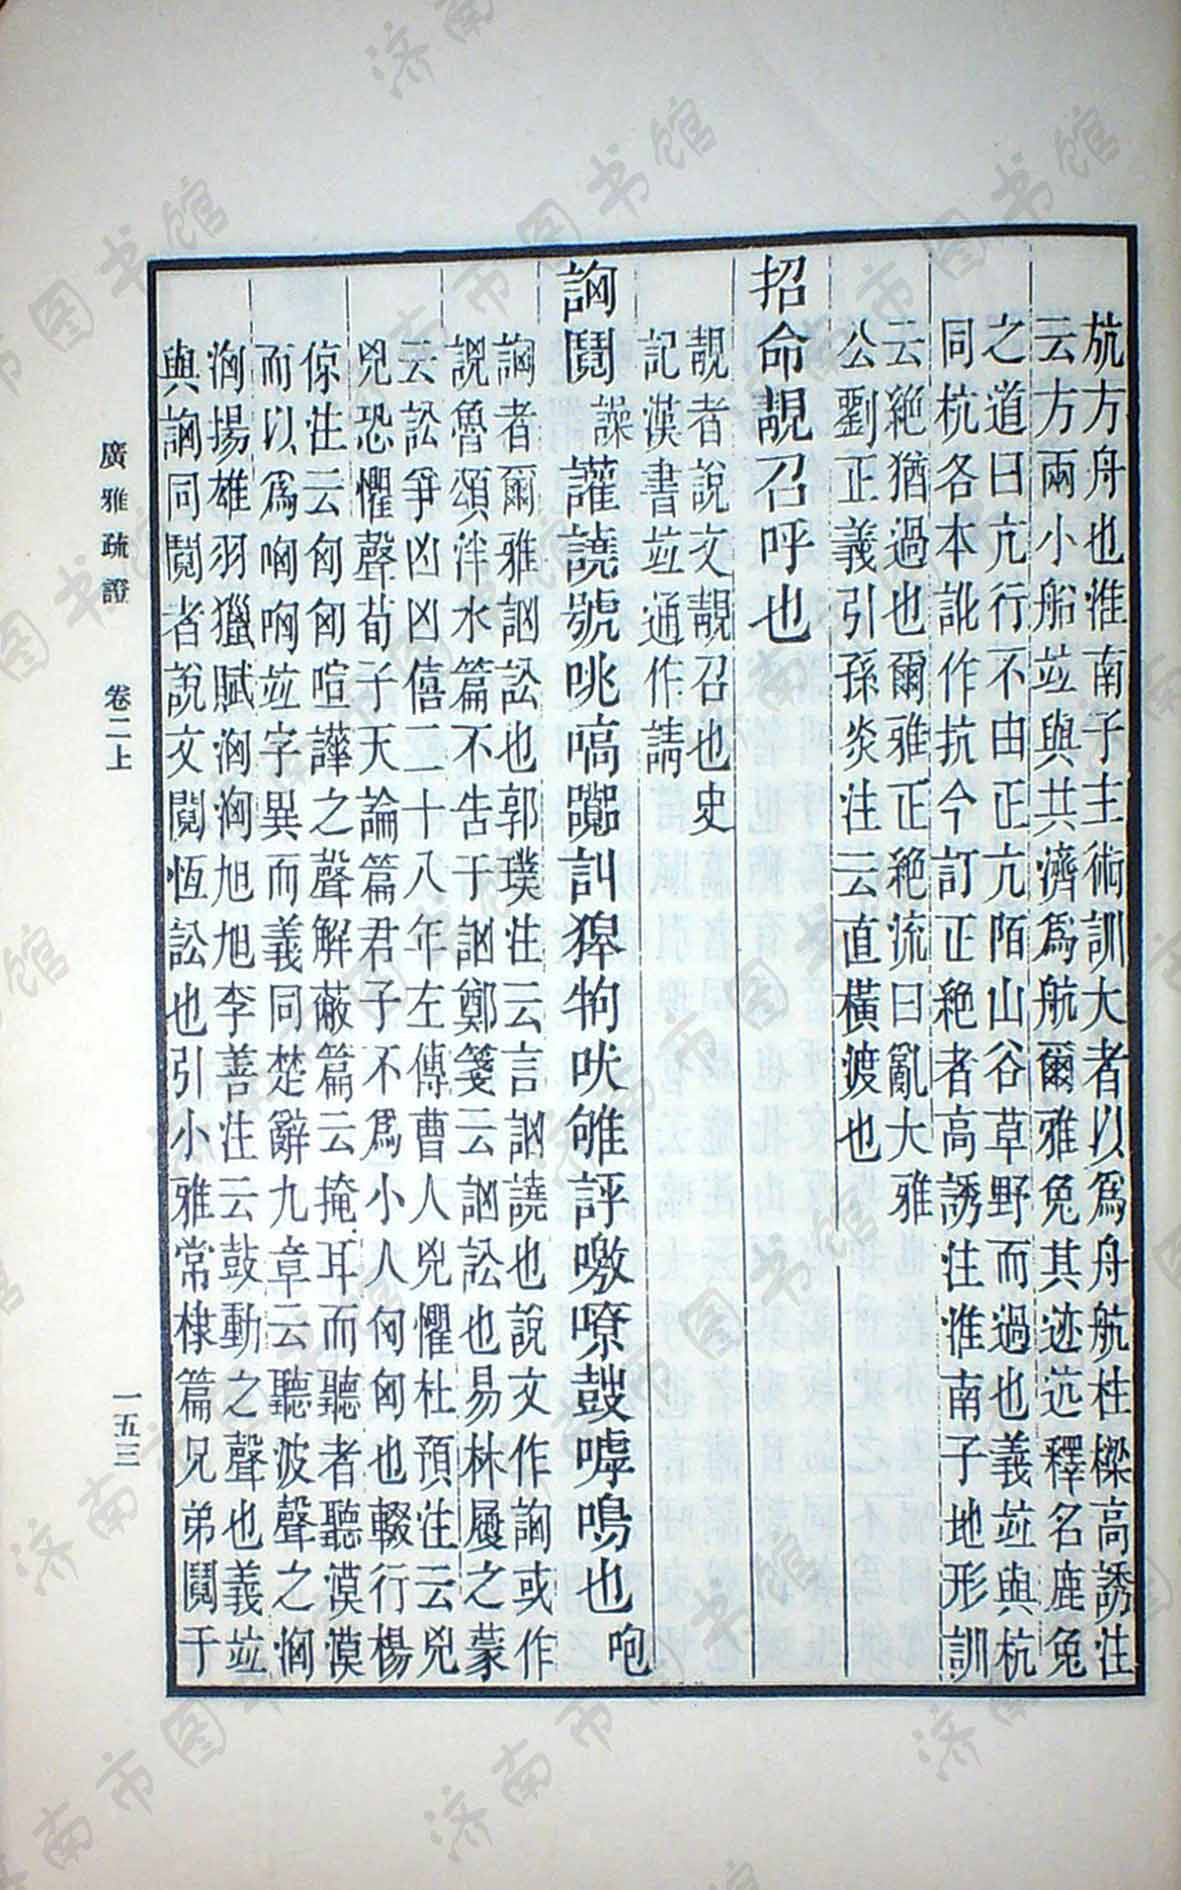 㡧方舟也淮南子主術訓大者以爲舟航柱樑高誘注
云方兩小船竝與共濟爲航爾雅兔其迹迒釋名鹿兔
之道曰亢行不由正亢陌山谷草野而過也義竝與杭
同杭各本訛作抗今訂正絶者高誘注淮南子地形訓
云絶猶過也爾雅正絶流曰亂大雅
公劉正義引孫炎注云直橫渡也
招命靚召呼也
靚者說文靚召也史
記漢書竝通作請
詾鬩譟讙譊號咷嗃嘂訓獋㺃吠雊評噭嘹鼓嘑鳴也
咆
詾者爾雅訩訟也郭璞注云言訩譊也說文作詾或作
說魯頌泮水篇不告于訩鄭箋云訩訟也易林履之蒙
云訟爭凶凶僖二十八年左傳曹人兇懼杜預注云兇
兇恐懼聲荀子天論篇君子不爲小人匈匈也輟行楊
倞注云匈匈喧譁之聲解蔽篇云掩耳而聽者聽漠漠
而以爲哅哅竝字異而義同楚辭九章云聽波聲之洶
洶揚雄羽獵賦洶洶旭旭李善注云鼓動之聲也義竝
與詾同鬩者說文鬩恆訟也引小雅常棣篇兄弟鬩于
廣雅疏證 卷二上 一五三
济南市图书馆